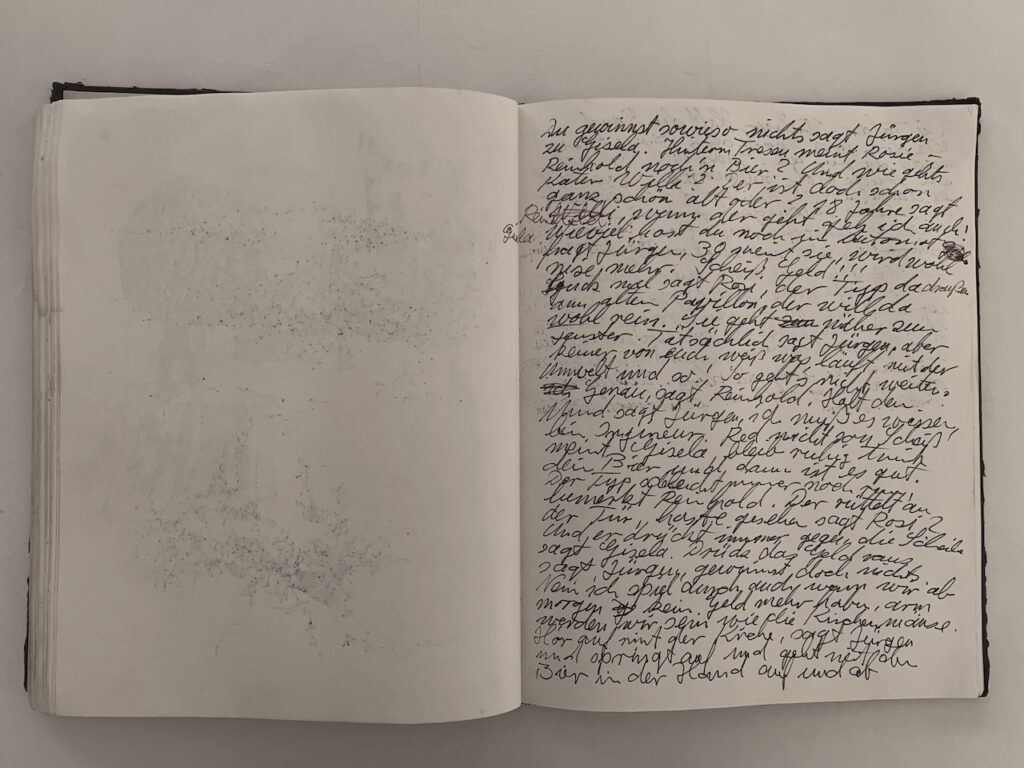 Du gewinnst sowieso nichts sagt Jürgen
zu Gisela. Hinterm Tresen meint Rosie
Reinhold noch'n Bier? Und wie gehts
Kater Willi? er ist doch schon
ganz schön alt oder? 18 Jahre sagt
Rein, wenn der geht geh ich auch!
Gisela Wieviel hast du noch im Automat
fragt Jürgen, 30 meint sie, wird wohl
nise mehr. Scheiß Geld!!!
mal sagt Rosi, der Typ da draußen
am alten Pavillon, der will da
wohl rein. Sie geht näher zum
Fenster. Tatsächlich sagt Jürgen, aber
keiner von euch weiß was läuft mit der
Umwelt und so. So geht's nicht weiter.
Genau, sagt Reinhold. Halt den
Mund sagt Jürgen, ich muß es wissen,
bin Ingineur. Red nicht son Scheiß
meint Gisela, bleib ruhig trink
dein Bier und dann ist es gut.
Der Typ steht immer noch
bemerkt Reinhold. Der rüttelt an
der Tür, haste gesehen sagt Rosi?
Und er drückt immer gegen die Scheibe
sagt Gisela. Drück das Geld raus
sagt Jürgen, gewinnst doch nichts
Nein ich spiel durch auch wenn wir ab
morgen kein Geld mehr haben, arm
werden wir sein wie die Kirchenmäuse.
Hör auf mit der Kirche, sagt Jürgen
und springt auf und geht mit dem
Bier in der Hand auf und ab